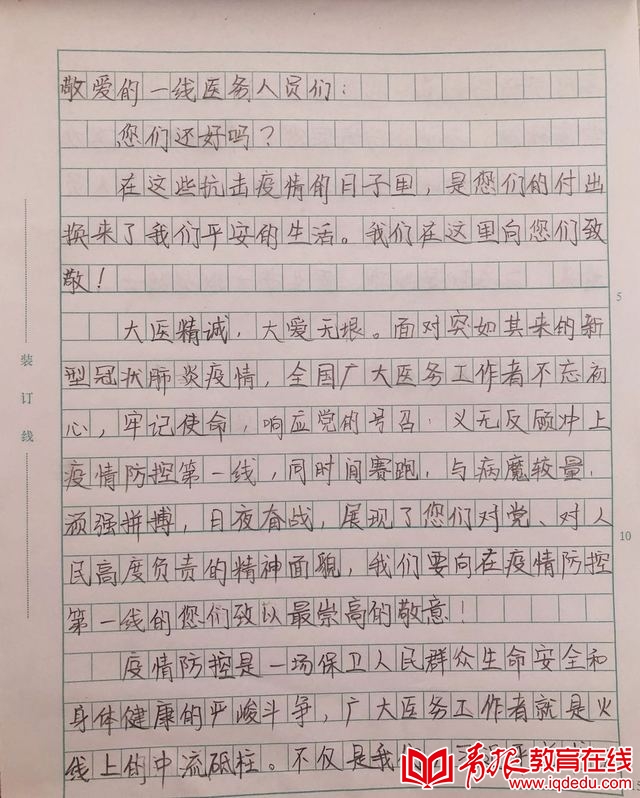 敬爱的一线医务人员们：
您们还好吗？
在这些抗击疫情的日子里，是您们的付出
换来了我们平安的生活。我们在这里向您们致
敬！
5
大医精诚，大爱无垠。面对突如其来的新
型冠状肺炎疫情，全国广大医务工作者不忘初
心，牢记使命，响应党的号召，义无反顾冲上
疫情防控第一线，同时间赛跑，与病魔较量，
顽强拼搏，日夜奋战，展现了您们对党、对人
10
民高度负责的精神面貌，我们要向在疫情防控
第一线的您们致以最崇高的敬意！
疫情防控是一场保卫人民群众生命安全和
身体健康的严峻斗争，广大医务工作者就是火
线上的中流砥柱。不仅是我
装订线
青报教育在线
www.iqdedu.com